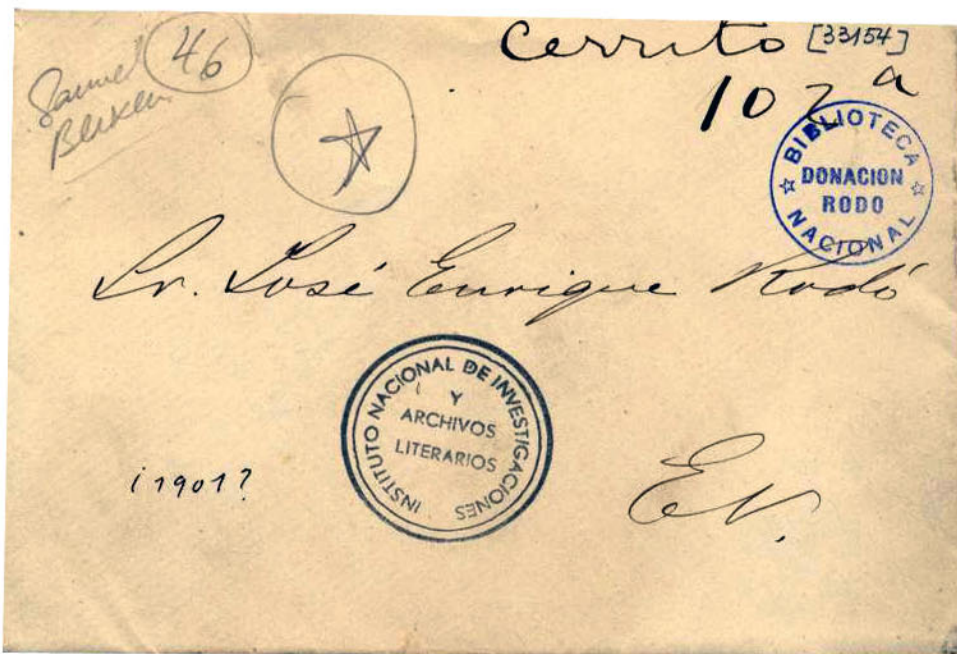 Samuel
Blixen
46
Cerrito [33154]
102 a
BIBLIOTECA
DONACION
RODO
NACIONAL
Sr. José Enrique Rodó
INSTITUTO NACIONAL DE INVESTIGACIONES
Y
ARCHIVOS
LITERARIOS
¿1901?